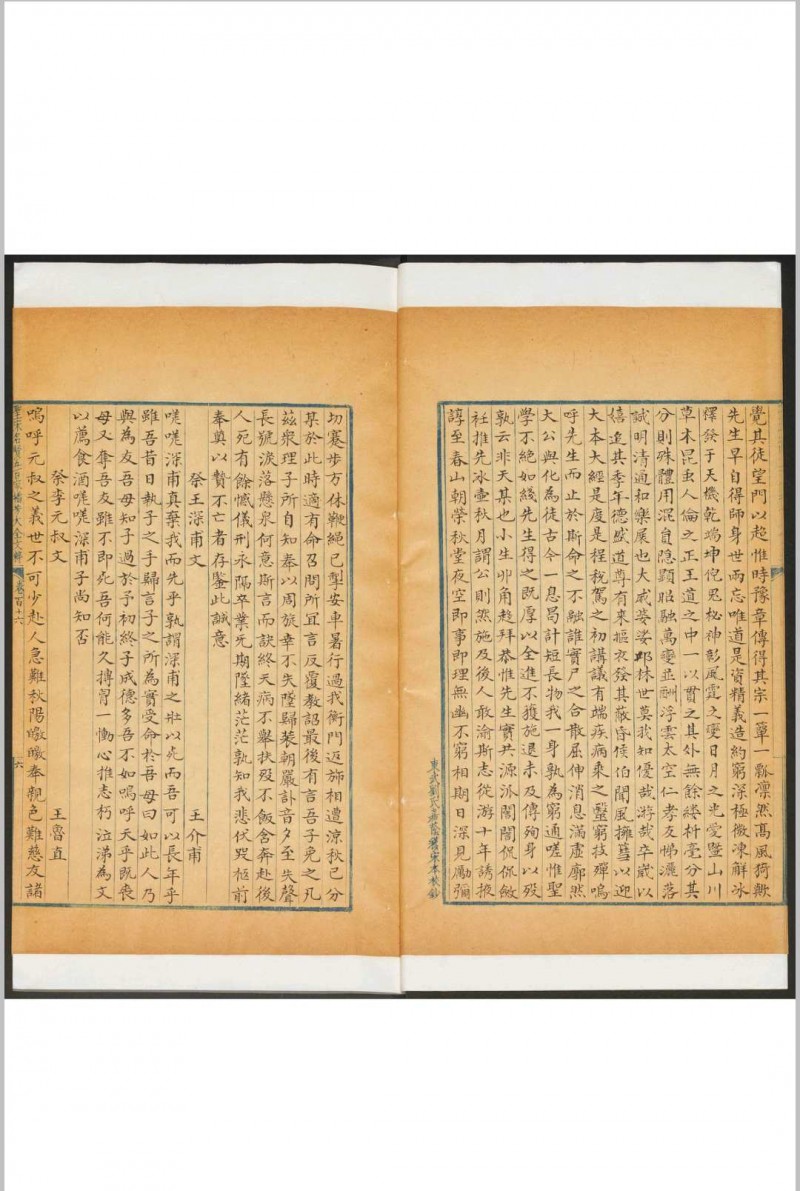 覺其徒堂門以起惟時豫章傳得其宗一簞一瓢凛然髙風猗歟
先生早自得師身世兩忘唯道是資精義造約窮深極微凍觧冰
釋發于天機乾端坤倪思秘神彰風雲之變日月之光爰暨山川
草木昆虫人倫之正王道之中一以貫之其外無餘縷析毫分其
分則殊體用混貟隐顯昭融萬變並酬浮雲太空仁孝友悌灑落
誠明清通和樂展也大成婆娑邱林世莫我知優哉游哉卒歲以
嬉迨其季年德盛道尊有来摳衣發其蔽昏侯伯聞風擁篲以迎
大本大經是度是程稅駕之初講議有端疾病乘之醫窮技殫嗚
呼先生而止於斯命之不融誰實尸之合散屈伸消息滿虛廓然
大公與化為徒古今一息曷計短長物我一身孰為窮通嗟惟聖
學不絶如綫先生得之既厚以全進不獲施退未及傳殉身以殁
孰云非天某也小生丱角趍拜恭惟先生實共源派誾誾侃侃斂
衽推先冰壺秋月謂公則然施及後人敢渝斯志從游十年誘掖
諄至春山朝榮秋堂夜空即事即理無幽不窮相期日深見勵彌
東武劉氏嘉蔭簃宋本校鈔
切蹇步方休鞭繩已掣安車暑行過我衡門返斾相遭涼秋已分
某於此時適有命召問所冝言反覆教詔最後有言吾子免之凡
兹衆理子所自知奉以周旅幸不失墜歸装朝嚴訃音夕至失聲
長號淚落懸泉何意斯言而訣終天病不舉扶殁不飯含奔赴後
人死有餘憾儀刑永隔卒業无期墜緒茫茫孰知我悲伏哭柩前
奉奠以贄不亡者存鍳此誠意
祭王深甫文 王介甫
嗟嗟深甫真棄我而先乎孰謂深甫之壯以死而吾可以長年乎
雖吾昔日執子之手歸言子之所為實受命於吾母曰如此人乃
與為友吾母知子過於予初終子成德多吾不如嗚呼天乎既喪
母又奪吾友雖不即死吾何能久摶胷一慟心摧志朽泣涕為文
以薦食酒嗟嗟深甫子尚知否
祭李元叔文 王魯直
嗚呼元叔之義世不可少赴人急難秋陽皦皦奉親色難慈友諸
卷百十六
六